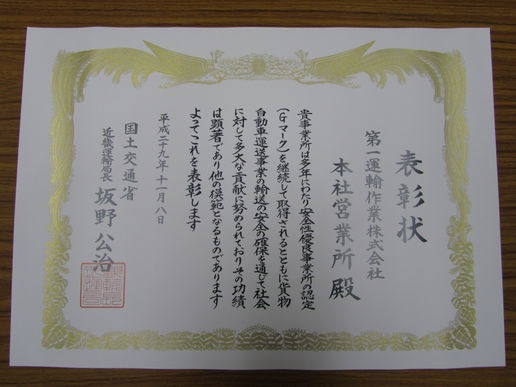 表彰状
第一運輸作業株式会社
本社営業所殿
貴事業所は多年にわたり安全性優良事業所の認定
(Gマーク)を継続して取得されるとともに貨物
自動車運送事業の輸送の安全の確保を通して社会
に対して多大な貢献に努められておりその功績
は顕著であり他の模範となるものであります
よってこれを表彰します
平成二十九年十一月八日
国土交通省
近畿運輸局長 坂野公治